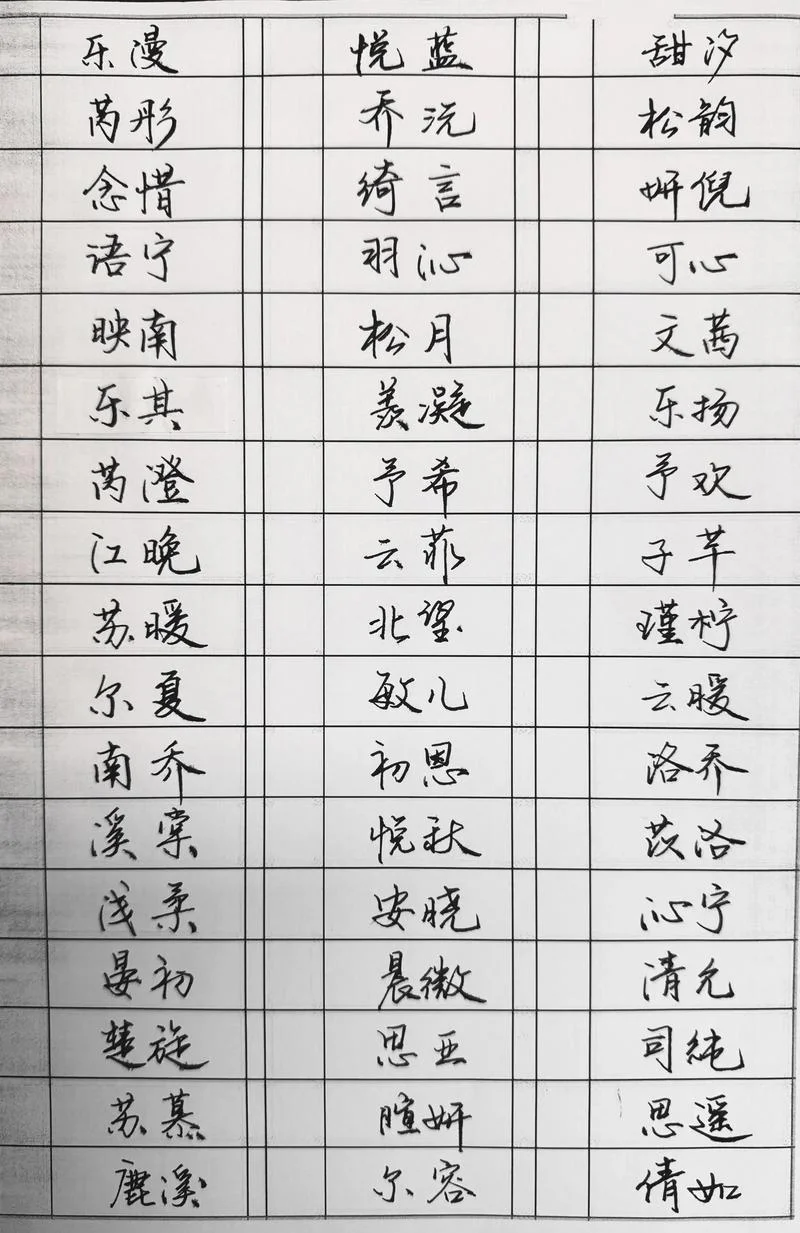 乐漫 悦蓝 甜汐
芮彤 乔沅 松韵
念惜 绮言 妍倪
语宁 羽沁 可心
映南 松月 文茜
乐其 羡凝 乐扬
芮澄 予希 予欢
江晚 云菲 子芊
苏暖 北望 瑾柠
尔夏 敏儿 云暖
南乔 初恩 洛乔
溪棠 悦秋 苡洛
浅柔 安晓 沁宁
晏初 晨微 清允
楚旋 思亚 司纯
苏慕 暄妍 思遥
鹿溪 尔容 倩如